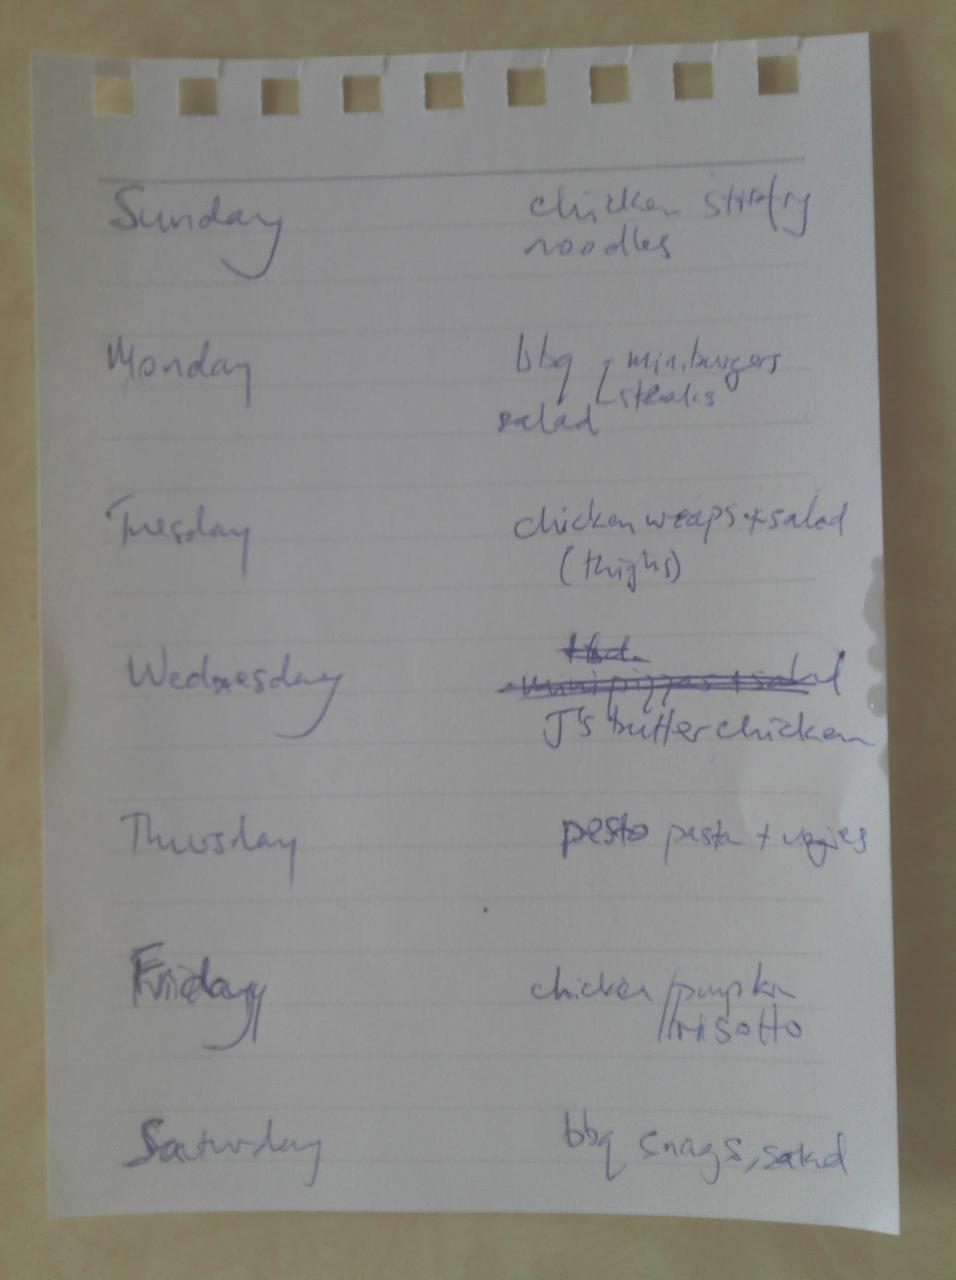 Sunday chicken stirfry
noodles
Monday bbq min.burgers
steaks
salad
Tuesday chicken wraps + salad
(thighs)
Wednesday
mini pizzas + salad
J's butter chicken
Thursday pesto pasta + vegies
Friday chicken / pumpkin
risotto
Saturday bbq snags, salad